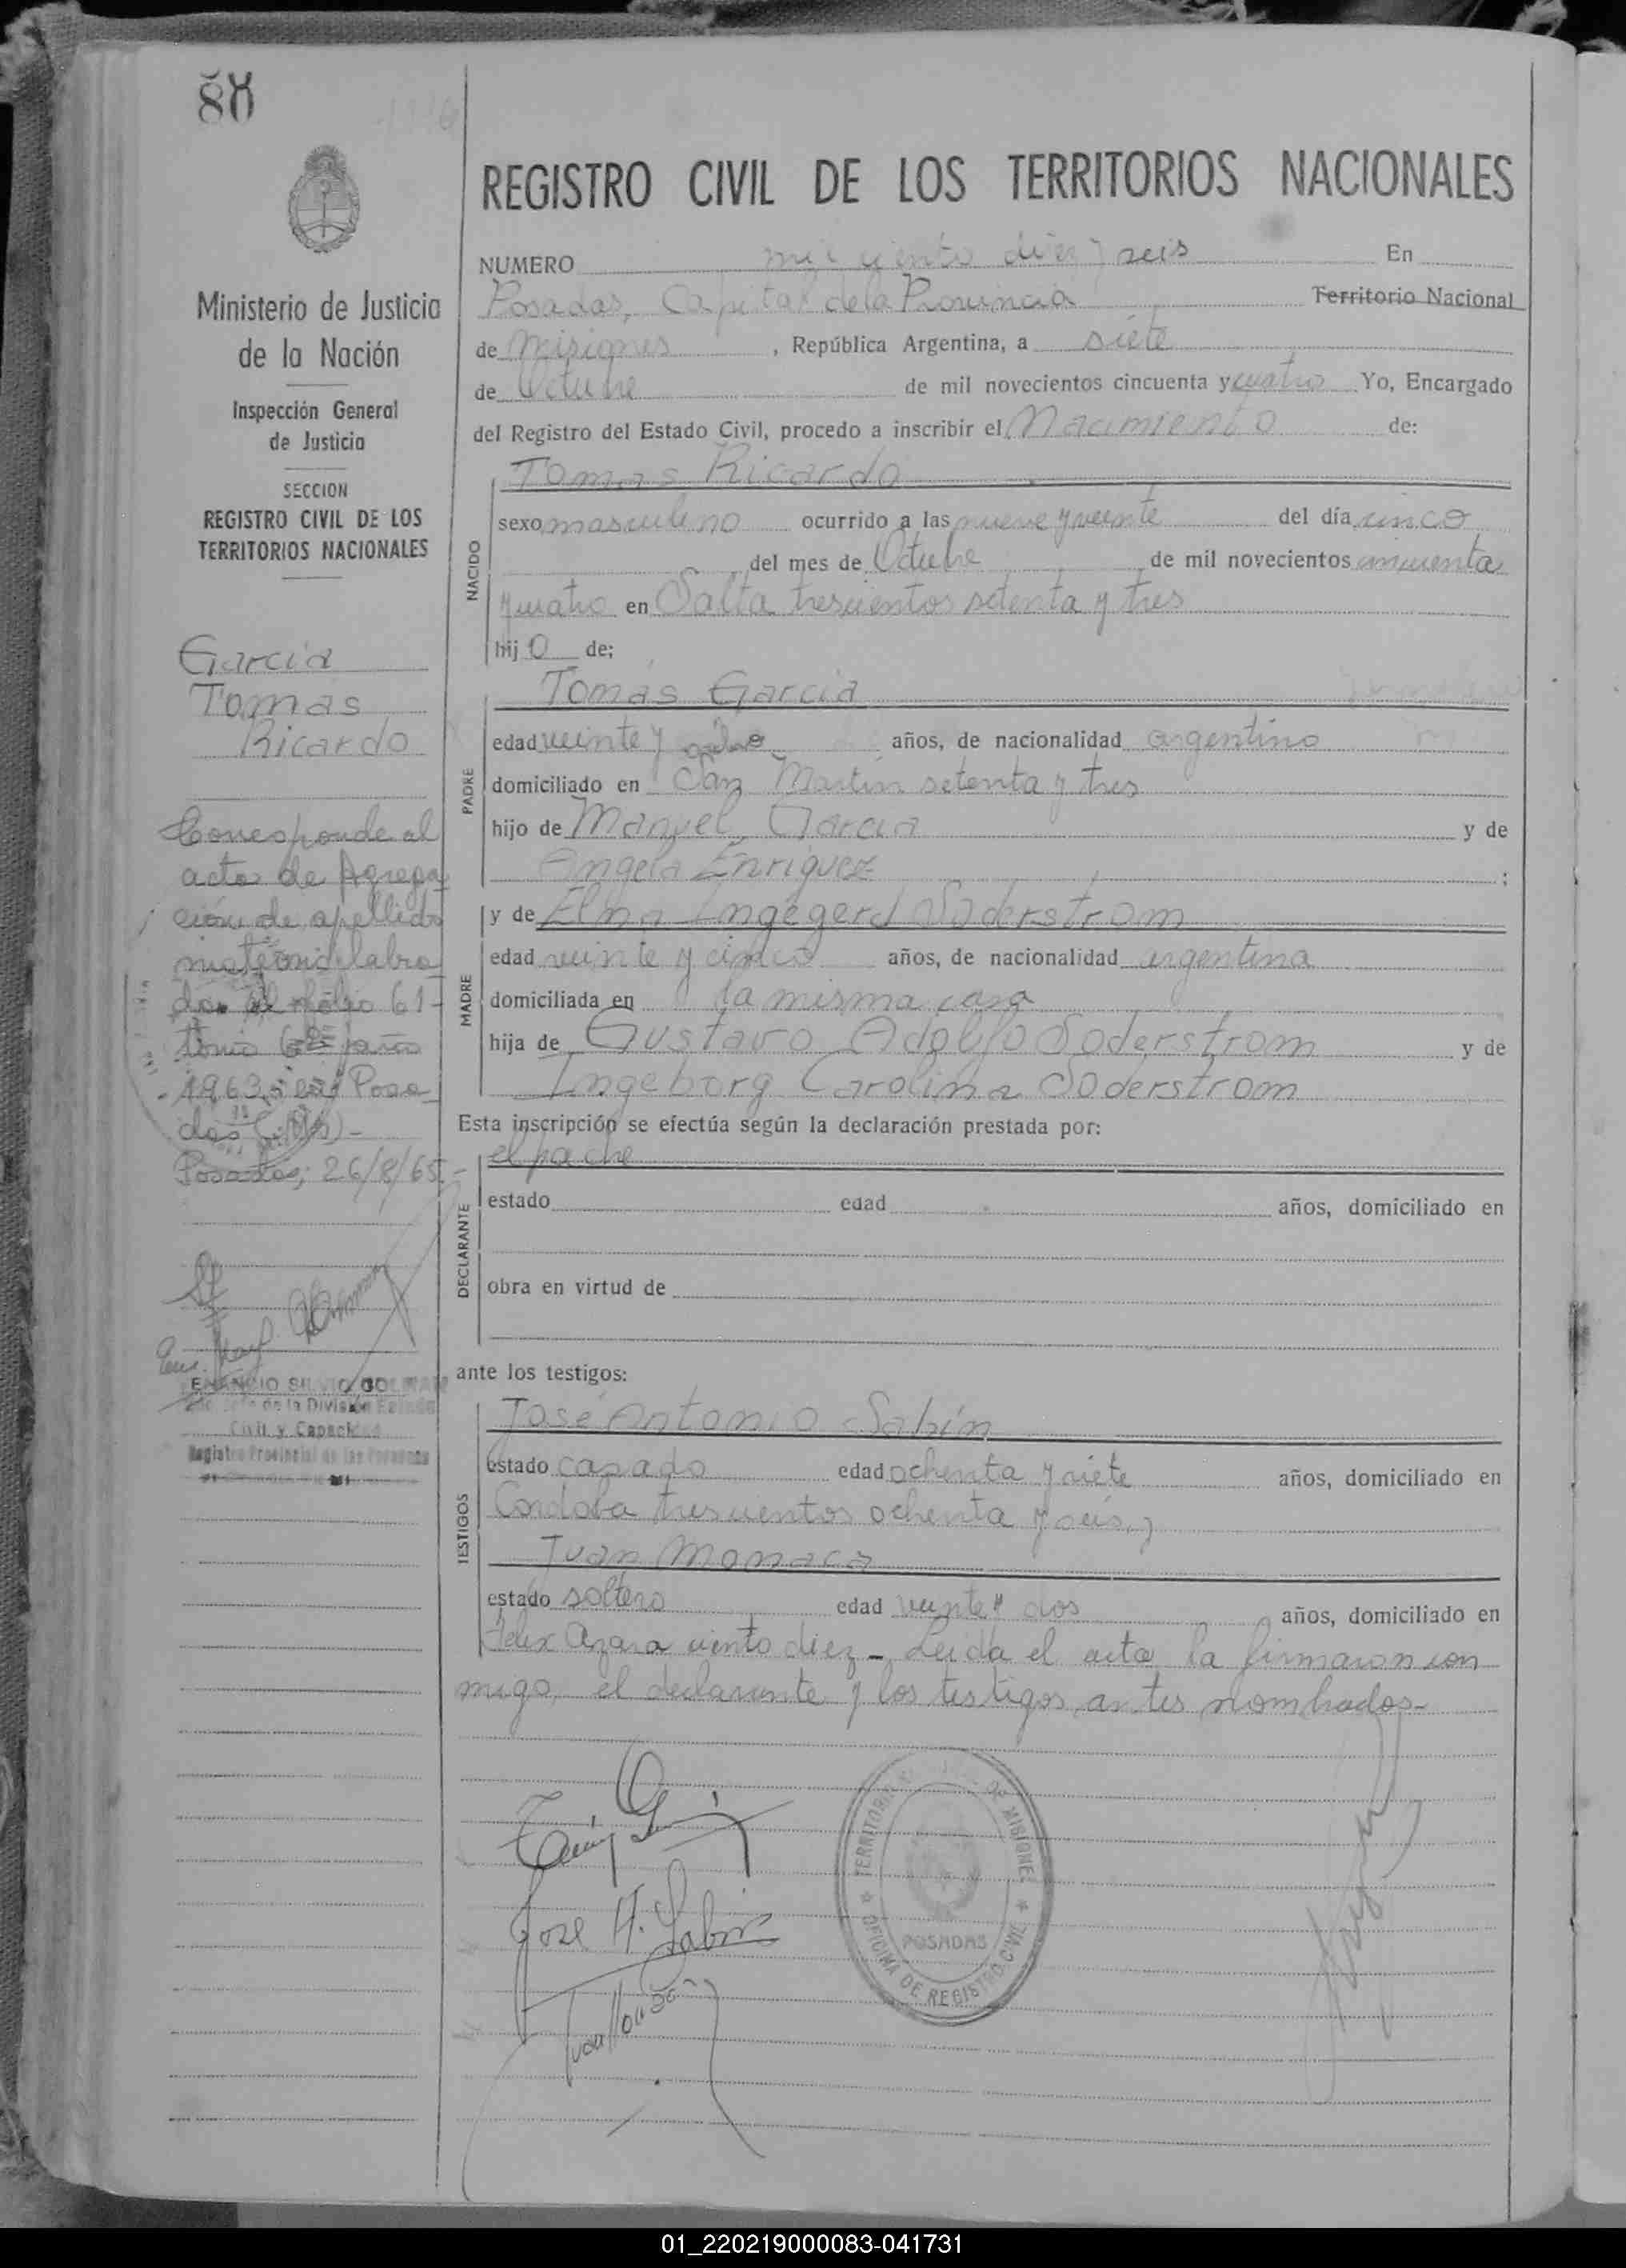 88
REGISTRO CIVIL DE LOS TERRITORIOS NACIONALES
Ministerio de Justicia
de la Nación
Inspección General
de Justicia
SECCION
REGISTRO CIVIL DE LOS
TERRITORIOS NACIONALES
Garcia
Tomas
Ricardo
Corresponde al
acta de Agrega
ción de apellido
materno labra
da al folio 61-
tomo año
1963, en Posa
das (Ms)-
Posadas, 26/8/65.-
SILVIO GOL
de la División
Civil y Capacidad
Registro Provincial de las Personas
NUMERO mil ciento diez y seis En
Posadas, Capital de la Provincia Territorio Nacional
de Misiones, República Argentina, a siete
de Octubre de mil novecientos cincuenta y cuatro Yo, Encargado
del Registro del Estado Civil, procedo a inscribir el Nacimiento de:
NACIDO
Tomas Ricardo
sexo masculino ocurrido a las nueve y veinte del día cinco
del mes de Octubre de mil novecientos cincuenta
y cuatro en Salta trescientos setenta y tres
hijo de:
PADRE
Tomas Garcia
edad veinte y ocho años, de nacionalidad argentino
domiciliado en San Martin setenta y tres
hijo de Manuel Garcia y de
Angela Enriquez ;
MADRE
y de Elna Ingegerd Soderstrom
edad veinte y cinco años, de nacionalidad argentina
domiciliada en la misma casa
hija de Gustavo Adolfo Soderstrom y de
Ingeborg Carolina Soderstrom
Esta inscripción se efectúa según la declaración prestada por:
DECLARANTE
el padre
estado edad años, domiciliado en
obra en virtud de
ante los testigos:
TESTIGOS
José Antonio Sabin
estado casado edad ochenta y siete años, domiciliado en
Cordoba trescientos ochenta y seis, y
Juan Monaca
estado soltero edad veinte y dos años, domiciliado en
Felix Azara ciento diez - Leida el acta la firmaron con
migo, el declarante y los testigos antes nombrados-
Jose A. Sabin
TERRITORIO DE MISIONES
POSADAS
OFICINA DE REGISTRO CIVIL
01_220219000083-041731